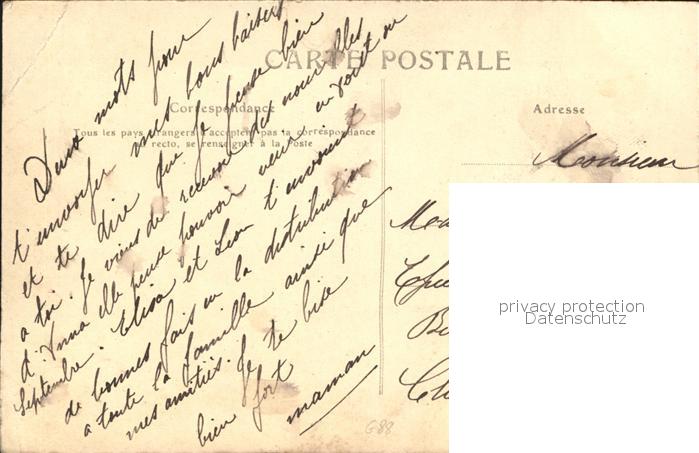 CARTE POSTALE
Correspondance
Tous les pays étrangers n'acceptent pas la correspondance
au recto, se renseigner à la Poste
Adresse
Deux mots pour
t'envoyer mes bons baisers
et te dire que je pense bien
a toi. Je viens de recevoir des nouvelles
d'Anna elle pense pouvoir venir en août ou
Septembre. Elisa et Leon t'envoient
de bonnes fais en la distribution
a toute la famille ainsi que
mes amitiés. Je te bise
bien fort
maman
Monsieur
G88
privacy protection
Datenschutz